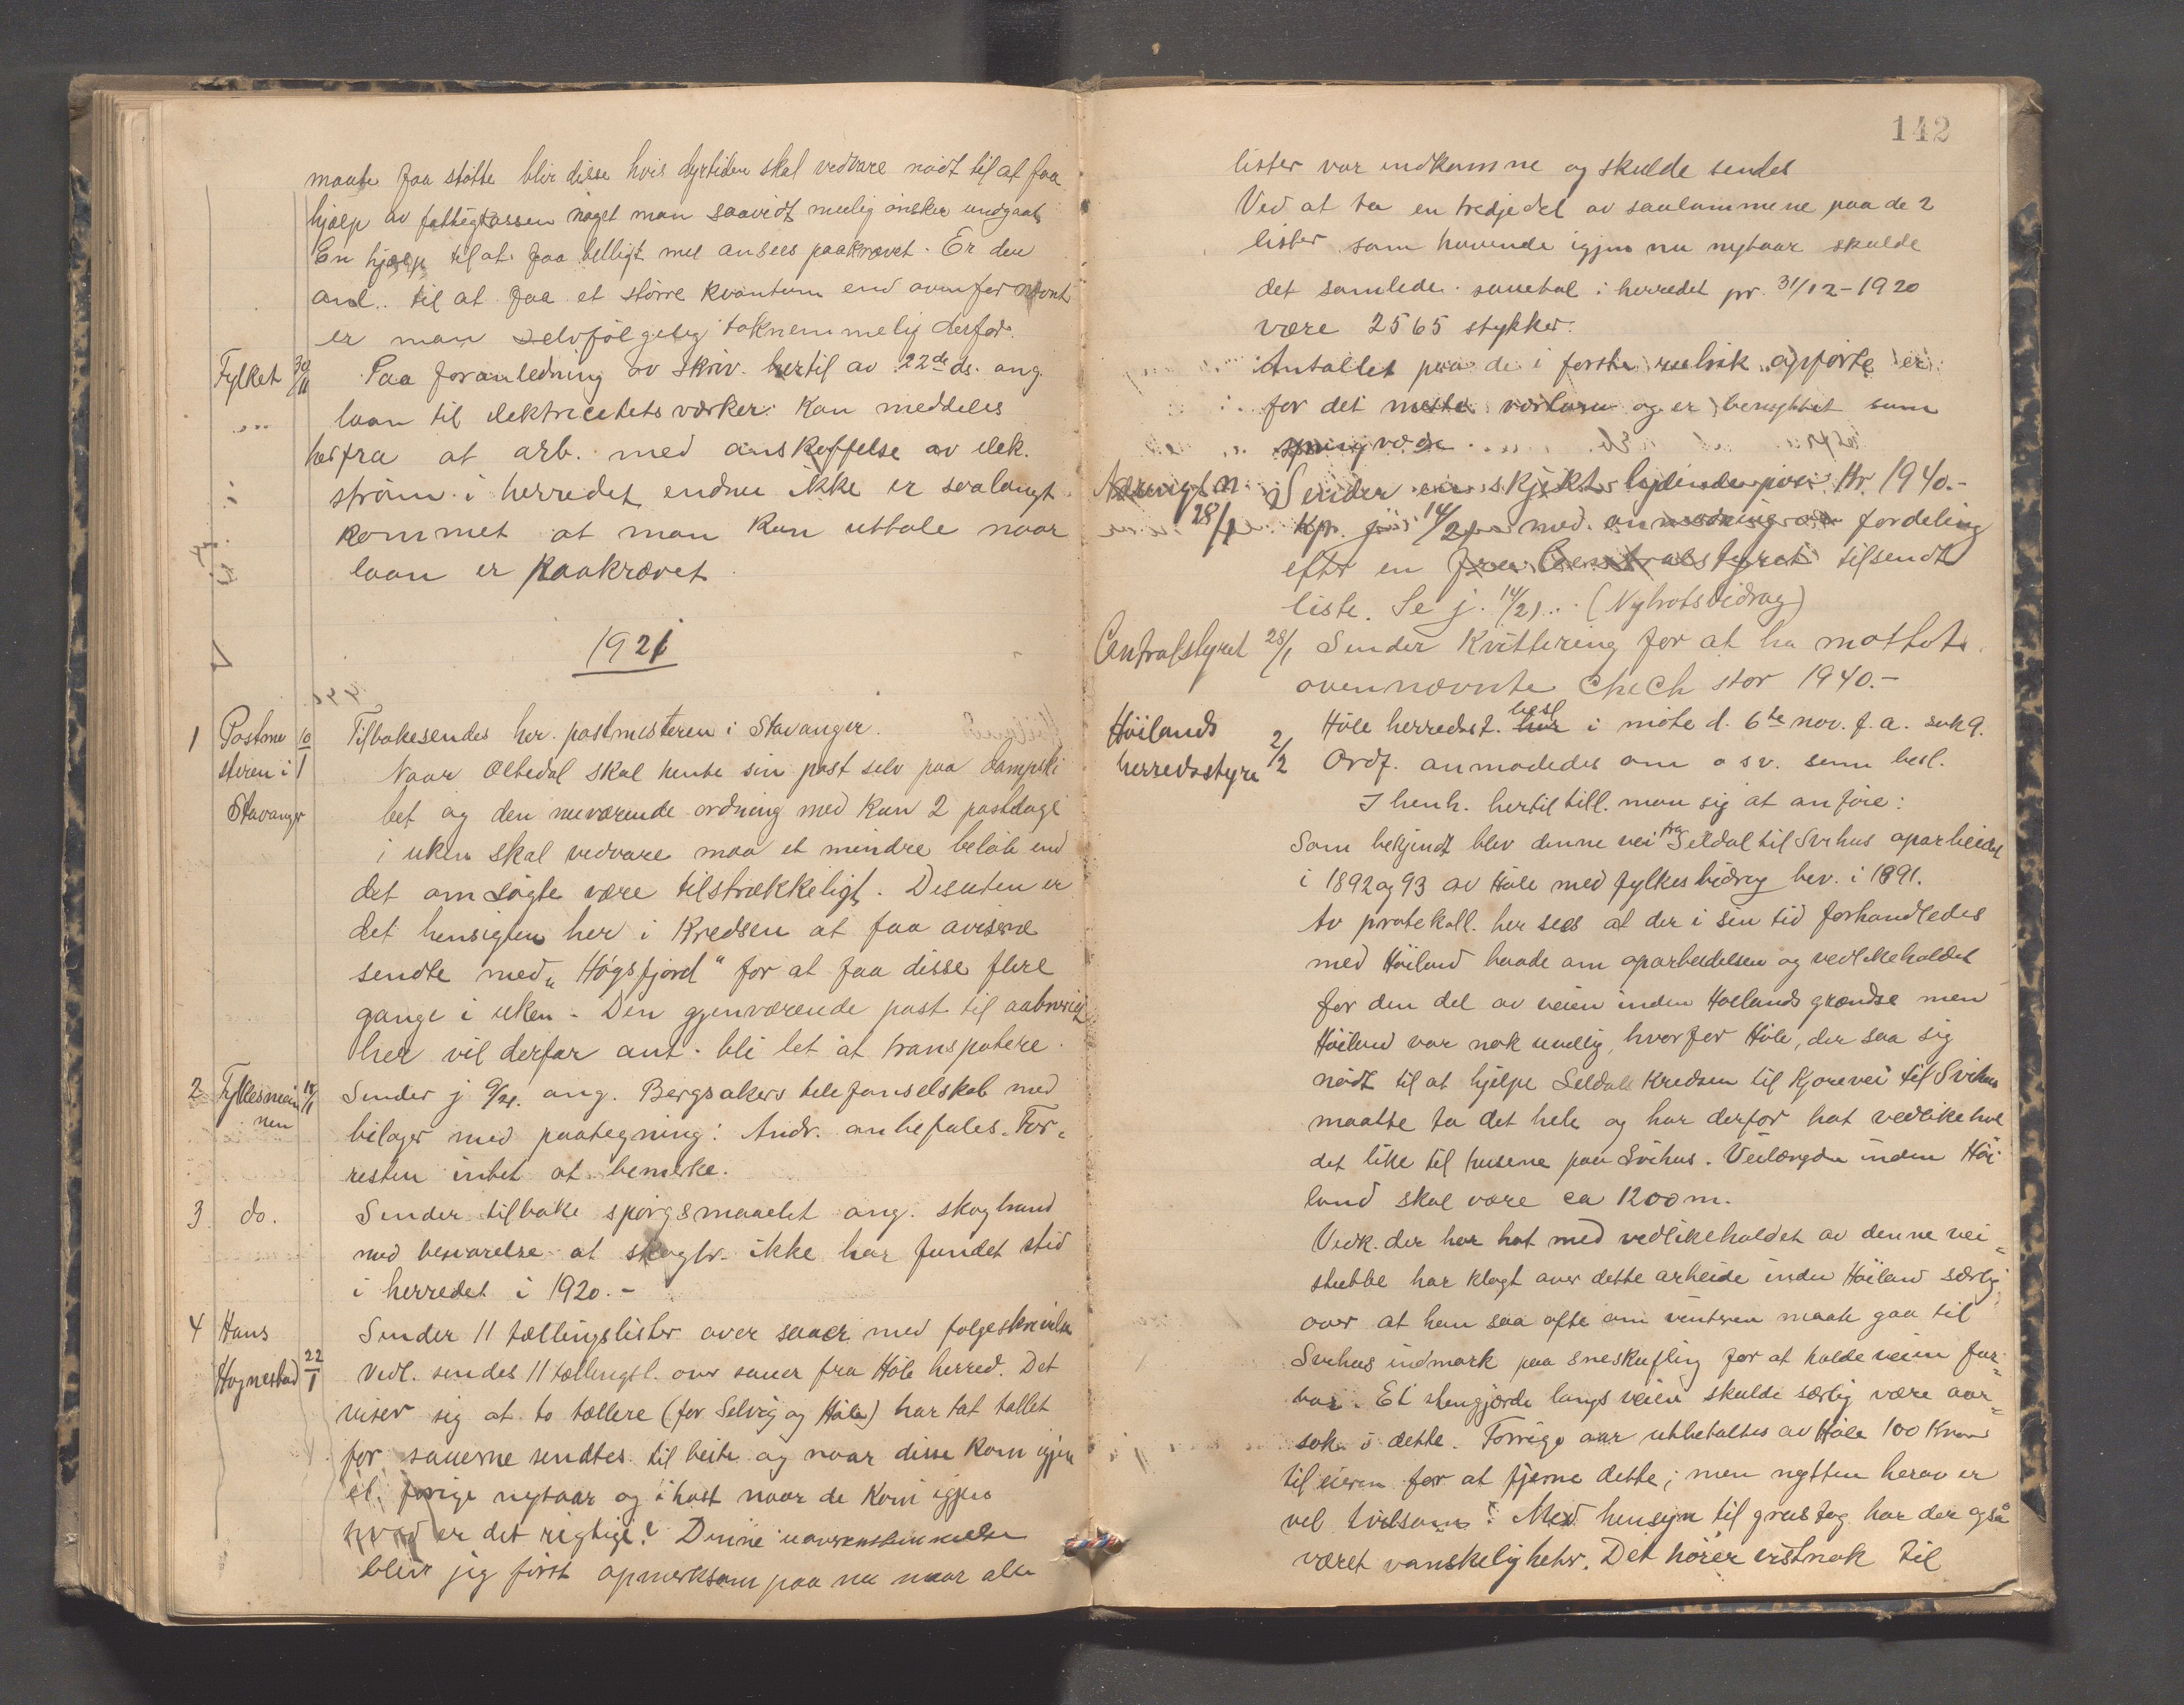 maate faa støtte blir disse hvis dyrtiden skal vedvare nødt til at faa
hjælp av fattigkassen noget man saavidt mulig ønsker undgaat
En hjælp til at faa billigt mel ansees paakrævet. Er der
anl. til at faa et større kvantum end ovenfor nævnt
er man selvfølgelig taknemmelig derfor.
Fylket 30/11 Paa foranledning av skriv. hertil av 22de ds. ang.
laan til elektricitetsværker kan meddeles
herfra at arb. med anskaffelse av elek.
strøm i herredet endnu ikke er saalangt
kommet at man kan uttale naar
laan er paakrævet.
1921
1 Postme 10/1 Tilbakesendes hr. postmesteren i Stavanger.
steren i Naar Oltedal skal hente sin post selv paa dampski
Stavanger bet og den nuværende ordning med kun 2 postdage
i uken skal vedvare maa et mindre beløb end
det omsøgte være tilstrækkeligt. Desuten er
det hensigten her i kredsen at faa aviserne
sendte med „Høgsfjord" for at faa disse flere
gange i uken. Den gjenværende post til aabneri
her vil derfor ant. bli let at transpotere.
2 Fylkesman 18/1 Sender j 9/21. ang. Bergsakers telefonselskab med
nen bilager med paategning: Andr. anbefales. For-
resten intet at bemerke.
3 do. Sender tilbake spørgsmaalet ang. skogbrand
med besvarelse at skogbr. ikke har fundet sted
i herredet i 1920.-
4 Hans Sender 11 tællingslister over sauer med følgeskrivelse
Hognestad 22/1 Vedl. sendes 11 tællingsl. over sauer fra Høle herred. Det
viser sig at to tællere (for Selvig og Høle) har tat tallet
før sauerne sendtes til beite og naar disse kom igjen
forrige nytaar og i høst naar de kom igjen
hvad er det rigtige? Denne uoverensstemmelse
blev jeg først opmerksom paa nu naar alle
142
lister var indkomne og skulde sendes
Ved at ta en tredjedel av saulammene paa de 2
lister som havende igjen nu nytaar skulde
det samlede sauetal i herredet pr. 31/12-1920
være 2565 stykker.
Antallet paa de i første rubrik opførte er
for det meste værlam og er benyttet som

Sender en skjekt lydende paa Kr. 1940.-
28/1 14/21 med anmodning om fordeling
efter en fra Centralstyret tilsendt
liste. Se j. 14/21.. (Nybrotsbidrag)
Centralstyret 28/1 Sender kvittering for at ha mottot
ovennævnte chech stor 1940.-
Høilands 2/2 Høle herredst. har besl i møte d. 6te nov. f.a. sak 9.
herredsstyre Ordf. anmodedes om osv. som besl.
I henh. hertil till. man sig at anføre:
Som bekjendt blev denne vei fra Seldal til Svihus oparbeidet
i 1892 og 93 av Høle med fylkesbidrag bev. i 1891.
Av protokoll. her sees at der i sin tid forhandledes
med Høiland baade om oparbeidelsen og vedlikeholdet
for den del av veien inden Hoelands grændse men
Høiland var nok uvillig, hvorfor Høle, der saa sig
nødt til at hjelpe Seldals kredsen til kjorevei til Svihus
maatte ta det hele og har derfor hat vedlikehol
det like til husene paa Svihus. Veilængden inden Høi
land skal være ca 1200m.
Vedk. der har hat med vedlikeholdet av denne vei-
stubbe har klagt over dette arbeide inden Høiland særlig
over at han saa ofte om vinteren maate gaa til
Svihus indmark paa sneskufling for at holde veien far-
bar. Et stengjærde langs veien skulde særlig være aar-
sak i dette. Forrige aar utbetaltes av Høle 100 Kroner
til eieren for at fjerne dette; men nytten herav er
vel tvilsom? Med hensyn til grustag har der også
været vanskeligheter. Det hører vistnok til